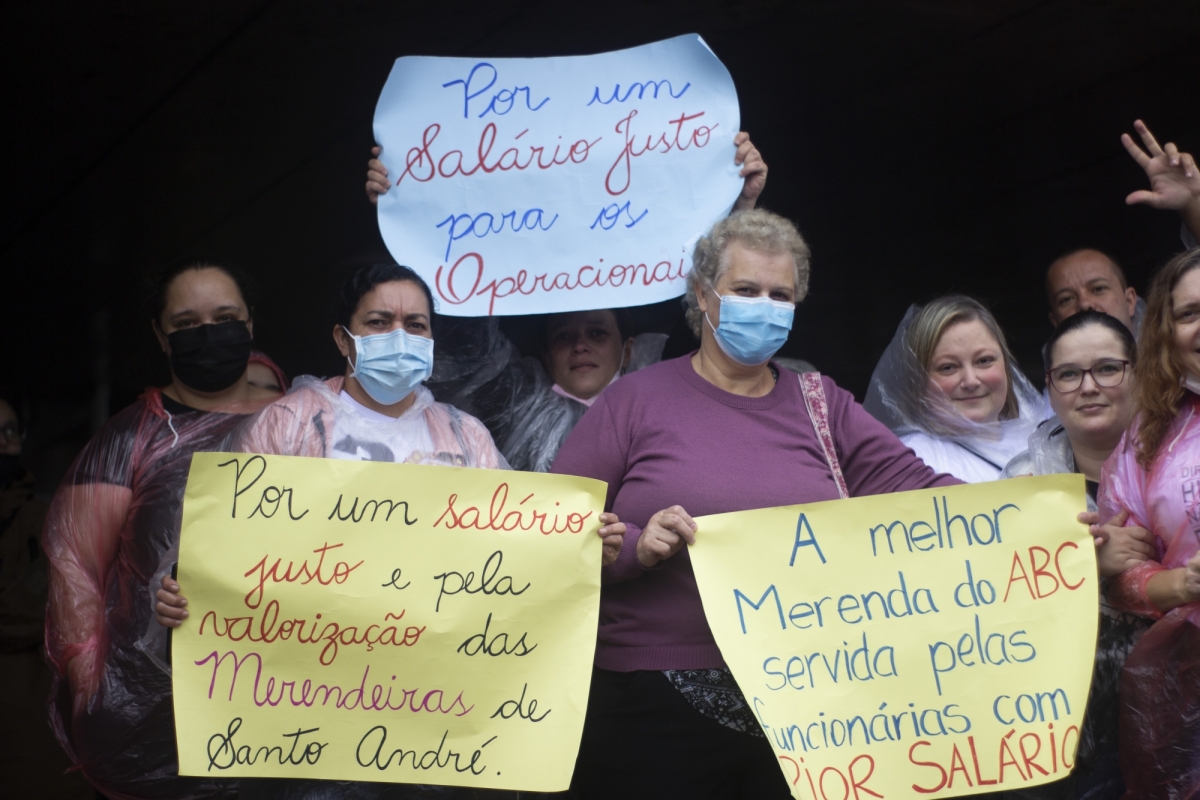 Por um
Salário Justo
para os
Operacionai
Por um salário
justo e pela
valorização das
Merendeiras de
Santo André.
A melhor
Merenda do ABC
servida pelas
funcionárias com
PIOR SALÁRIO